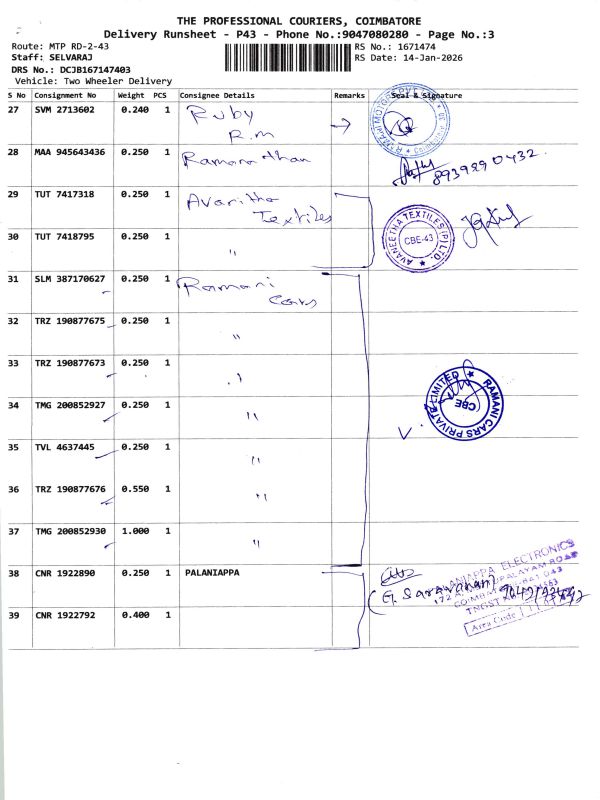 THE PROFESSIONAL COURIERS, COIMBATORE
Delivery Runsheet - P43 - Phone No.:9047080280 - Page No.:3
Route: MTP RD-2-43
RS No.: 1671474
Staff: SELVARAJ
RS Date: 14-Jan-2026
DRS No.: DCJB167147403
Vehicle: Two Wheeler Delivery
S No Consignment No Weight PCS Consignee Details Remarks Seal & Signature
27 SVM 2713602 0.240 1 Ruby
R.M
28 MAA 945643436 0.250 1 Ramanathan
8939890432.
29 TUT 7417318 0.250 1 Avanitha
Textiles
AVANEETHA TEXTILES (P) LTD.
CBE-43
30 TUT 7418795 0.250 1 "
31 SLM 387170627 0.250 1 Ramani
Cars
32 TRZ 190877675 0.250 1 "
33 TRZ 190877673 0.250 1 "
34 TMG 200852927 0.250 1 "
RAMANI CARS PRIVATE LIMITED
CBE
35 TVL 4637445 0.250 1 "
36 TRZ 190877676 0.550 1 "
37 TMG 200852930 1.000 1 "
38 CNR 1922890 0.250 1 PALANIAPPA
PALANIAPPA ELECTRONICS
(G. Saravanan)
Area Code
39 CNR 1922792 0.400 1